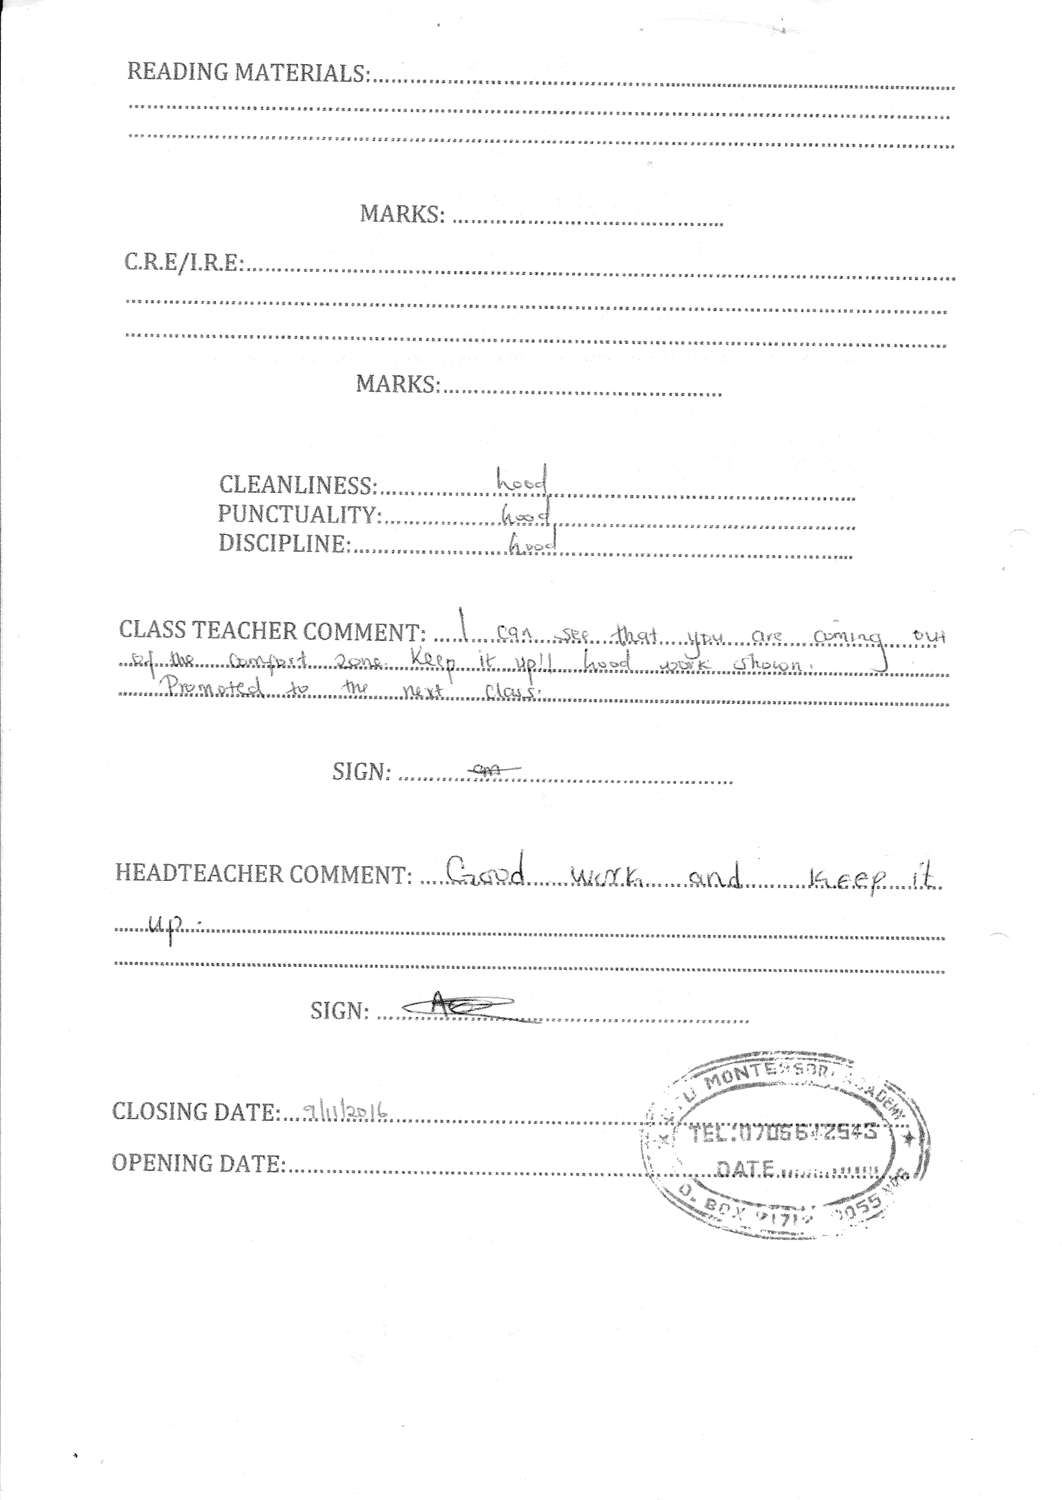 READING MATERIALS:
MARKS:
C.R.E/I.R.E:
MARKS:
CLEANLINESS: Good
PUNCTUALITY: Good
DISCIPLINE: Good
CLASS TEACHER COMMENT: I can see that you are coming out
of the comfort zone. Keep it up!! Good work shown.
Promoted to the next class.
SIGN:
HEADTEACHER COMMENT: Good work and keep it
up.
SIGN:
CLOSING DATE: 9/11/2016
OPENING DATE:
MONTESSORI ACADEMY
TEL:0705612543
DATE
BOX